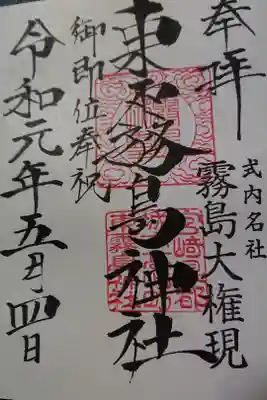 奉拝
式内名社
霧島大権現
東霧島神社
御即位奉祝
令和元年五月四日